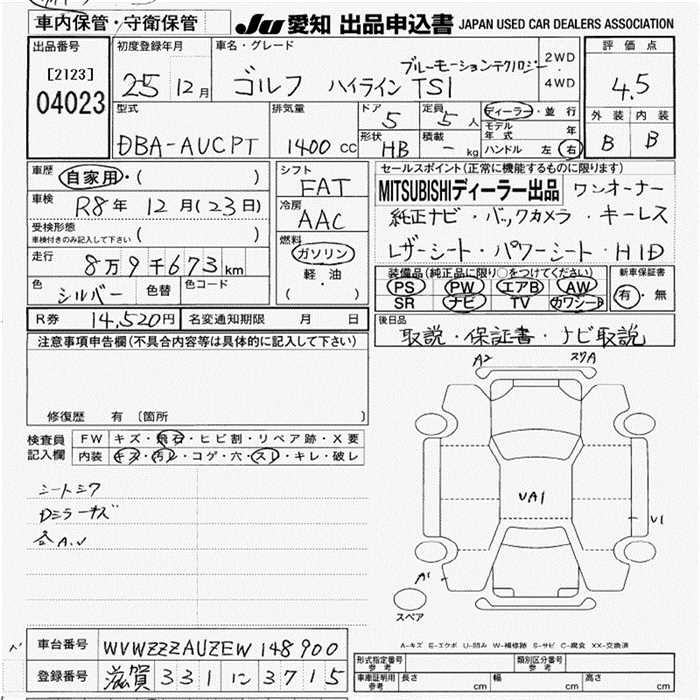 車内保管・守衛保管
JU 愛知 出品申込書 JAPAN USED CAR DEALERS ASSOCIATION
出品番号
[2123]
04023
初度登録年月
25 12月
車名・グレード
ブルーモーションテクノロジー
ゴルフ ハイライン TSI
2WD
4WD
評価点
4.5
外装 内装
B B
型式
DBA-AUCPT
排気量
1400 cc
ドア
5
形状
HB
定員
5 人
積載
- kg
ディーラー・並行
モデル年式 年
ハンドル 左 右
車歴 自家用・( )
車検 R8年 12月(23日)
受検形態
車検付きのみ記入して下さい ( )
走行 8万9千673km
色 シルバー 色替 色コード
シフト
FAT
冷房
AAC
燃料
ガソリン
軽・油
( )
セールスポイント(正常に機能するものに限ります)
MITSUBISHIディーラー出品 ワンオーナー
純正ナビ・バックカメラ・キーレス
レザーシート・パワーシート・HID
装備品(純正品に限り○をつけてください)
PS PW エアB AW
SR ナビ TV カワシート
新車保証書
有・無
R券 14,520円
名変通知期限 月 日
後日品
取説・保証書・ナビ取説
注意事項申告欄(不具合内容等は具体的に記入して下さい)
修復歴 有 〔箇所
検査員
記入欄
FW キズ・飛石・ヒビ割・リペア跡・X要
内装 キズ・汚レ・コゲ・穴・スレ・キレ・破レ
シートシワ
Dミラーキズ
各A.U
A2
スリA
UA1
U1
A1
スペア
A-キズ E-エクボ U-凹み W-補修跡 S-サビ C-腐食 XX-交換済
車台番号 WVWZZZAUZEW148900
登録番号 滋賀 331 に 3715
形式指定番号
参考
類別区分番号
参考
車庫証明用
参考
長さ cm
幅 cm
高さ cm